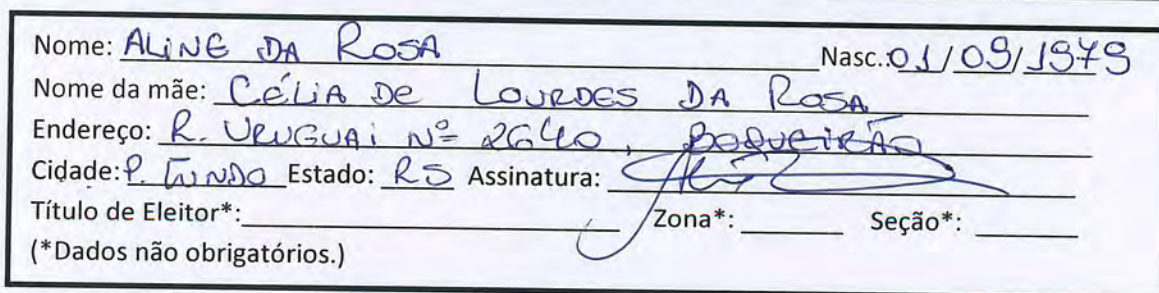 Nome: ALINE DA ROSA Nasc.: 01/09/1979
Nome da mãe: CÉLIA DE LOURDES DA ROSA
Endereço: R. URUGUAI Nº 2640, BOQUEIRÃO
Cidade: P. FUNDO Estado: RS Assinatura:
Título de Eleitor*: Zona*: Seção*:
(*Dados não obrigatórios.)